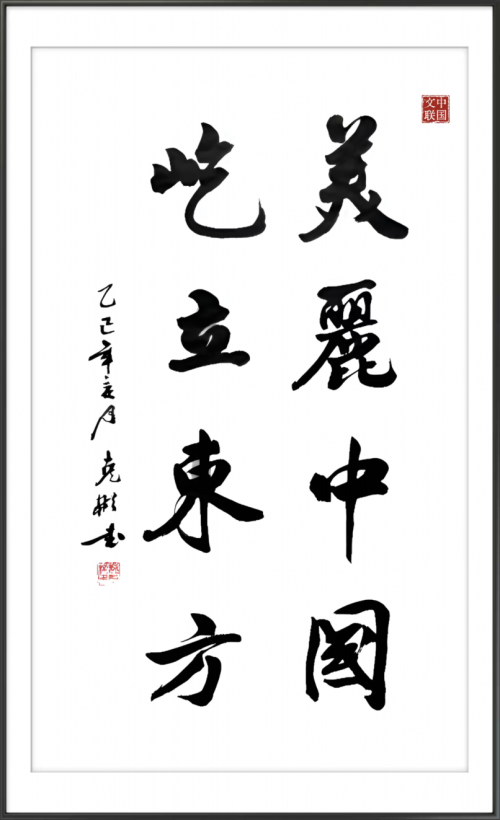 中国文联
美麗中國
屹立東方
乙巳年亥月 彬书